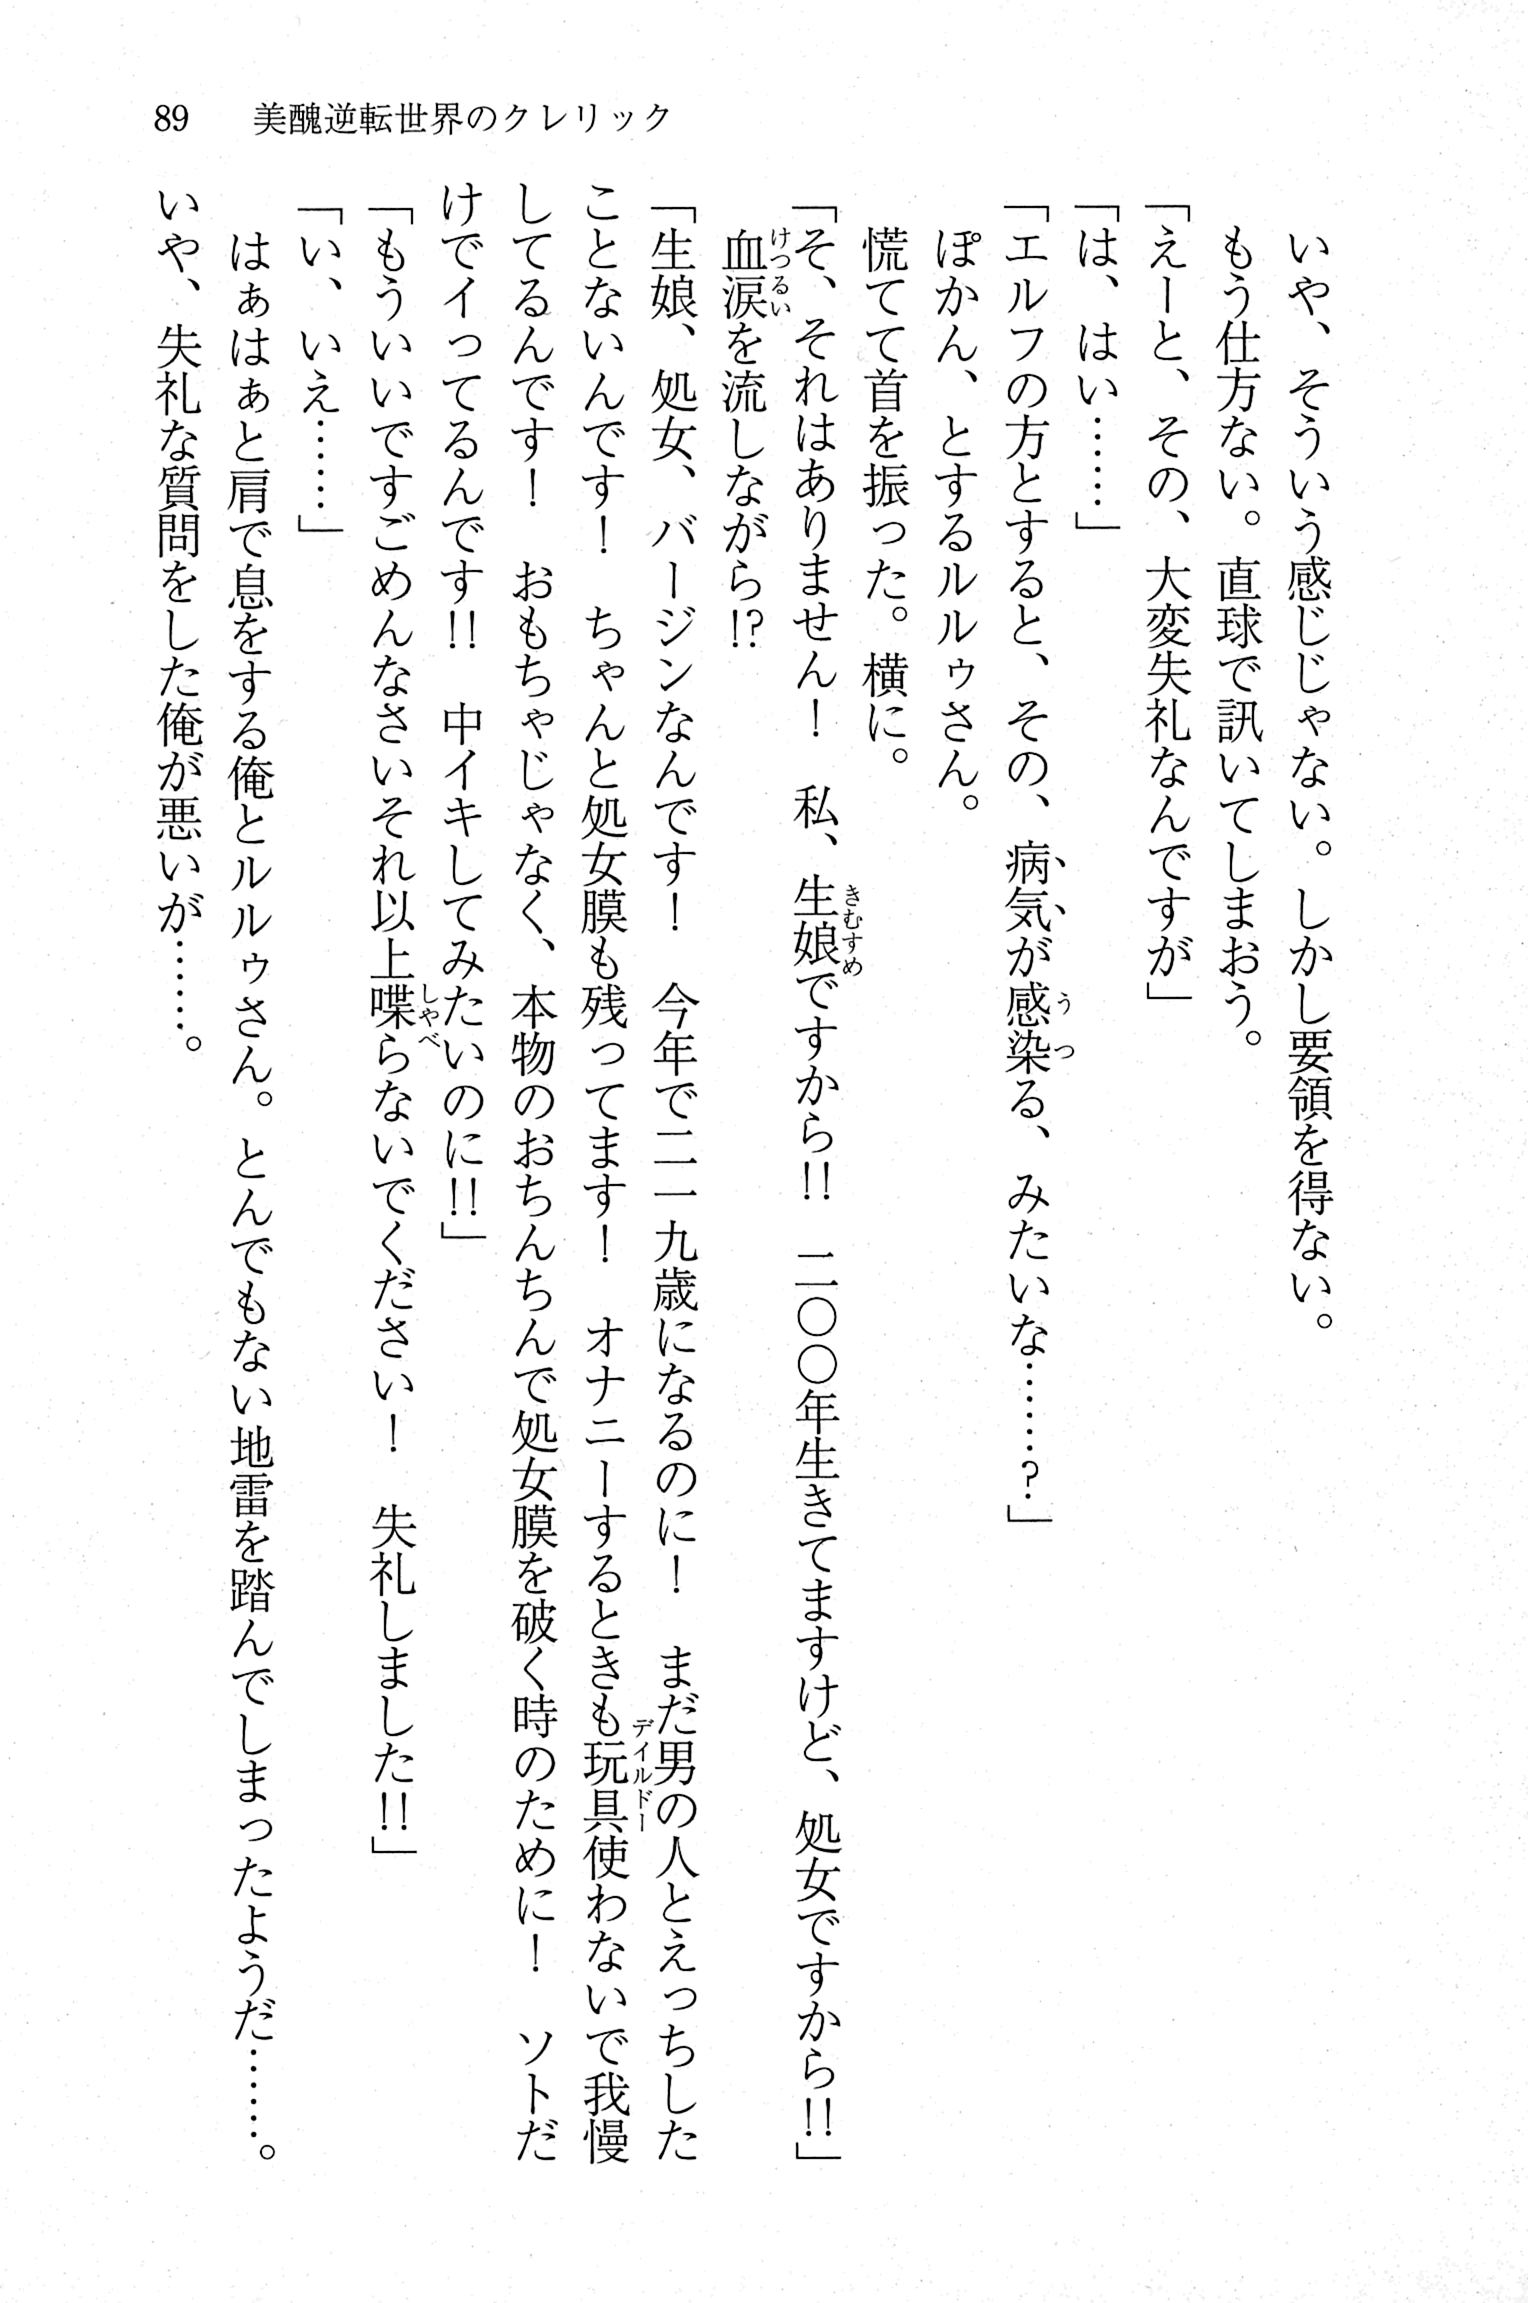 89　美醜逆転世界のクレリック
　いや、そういう感じじゃない。しかし要領を得ない。
　もう仕方ない。直球で訊いてしまおう。
「えーと、その、大変失礼なんですが」
「は、はい……」
「エルフの方とすると、その、病気が感染る、みたいな……？」
　ぽかん、とするルルゥさん。
　慌てて首を振った。横に。
「そ、それはありません！　私、生娘ですから!!　二〇〇年生きてますけど、処女ですから!!」
　血涙を流しながら!?
「生娘、処女、バージンなんです！　今年で二一九歳になるのに！　まだ男の人とえっちした
ことないんです！　ちゃんと処女膜も残ってます！　オナニーするときも玩具使わないで我慢
してるんです！　おもちゃじゃなく、本物のおちんちんで処女膜を破く時のために！　ソトだ
けでイってるんです!!　中イキしてみたいのに!!」
「もういいですごめんなさいそれ以上喋らないでください！　失礼しました!!」
「い、いえ……」
　はぁはぁと肩で息をする俺とルルゥさん。とんでもない地雷を踏んでしまったようだ……。
いや、失礼な質問をした俺が悪いが……。